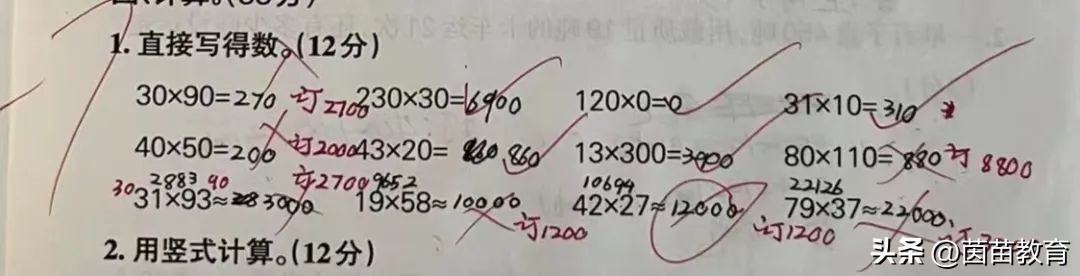 1. 直接写得数。(12分)
30×90=270 订2700 230×30=6900 120×0=0 31×10=310
40×50=200 订2000 43×20= 860 13×300=3900 80×110=880 订8800
30 2883 90 订2700 9652 10699 22126
31×93≈3000 19×58≈10000 订1200 42×27≈12000 订1200 79×37≈22000
2. 用竖式计算。(12分)
头条 @茵苗教育